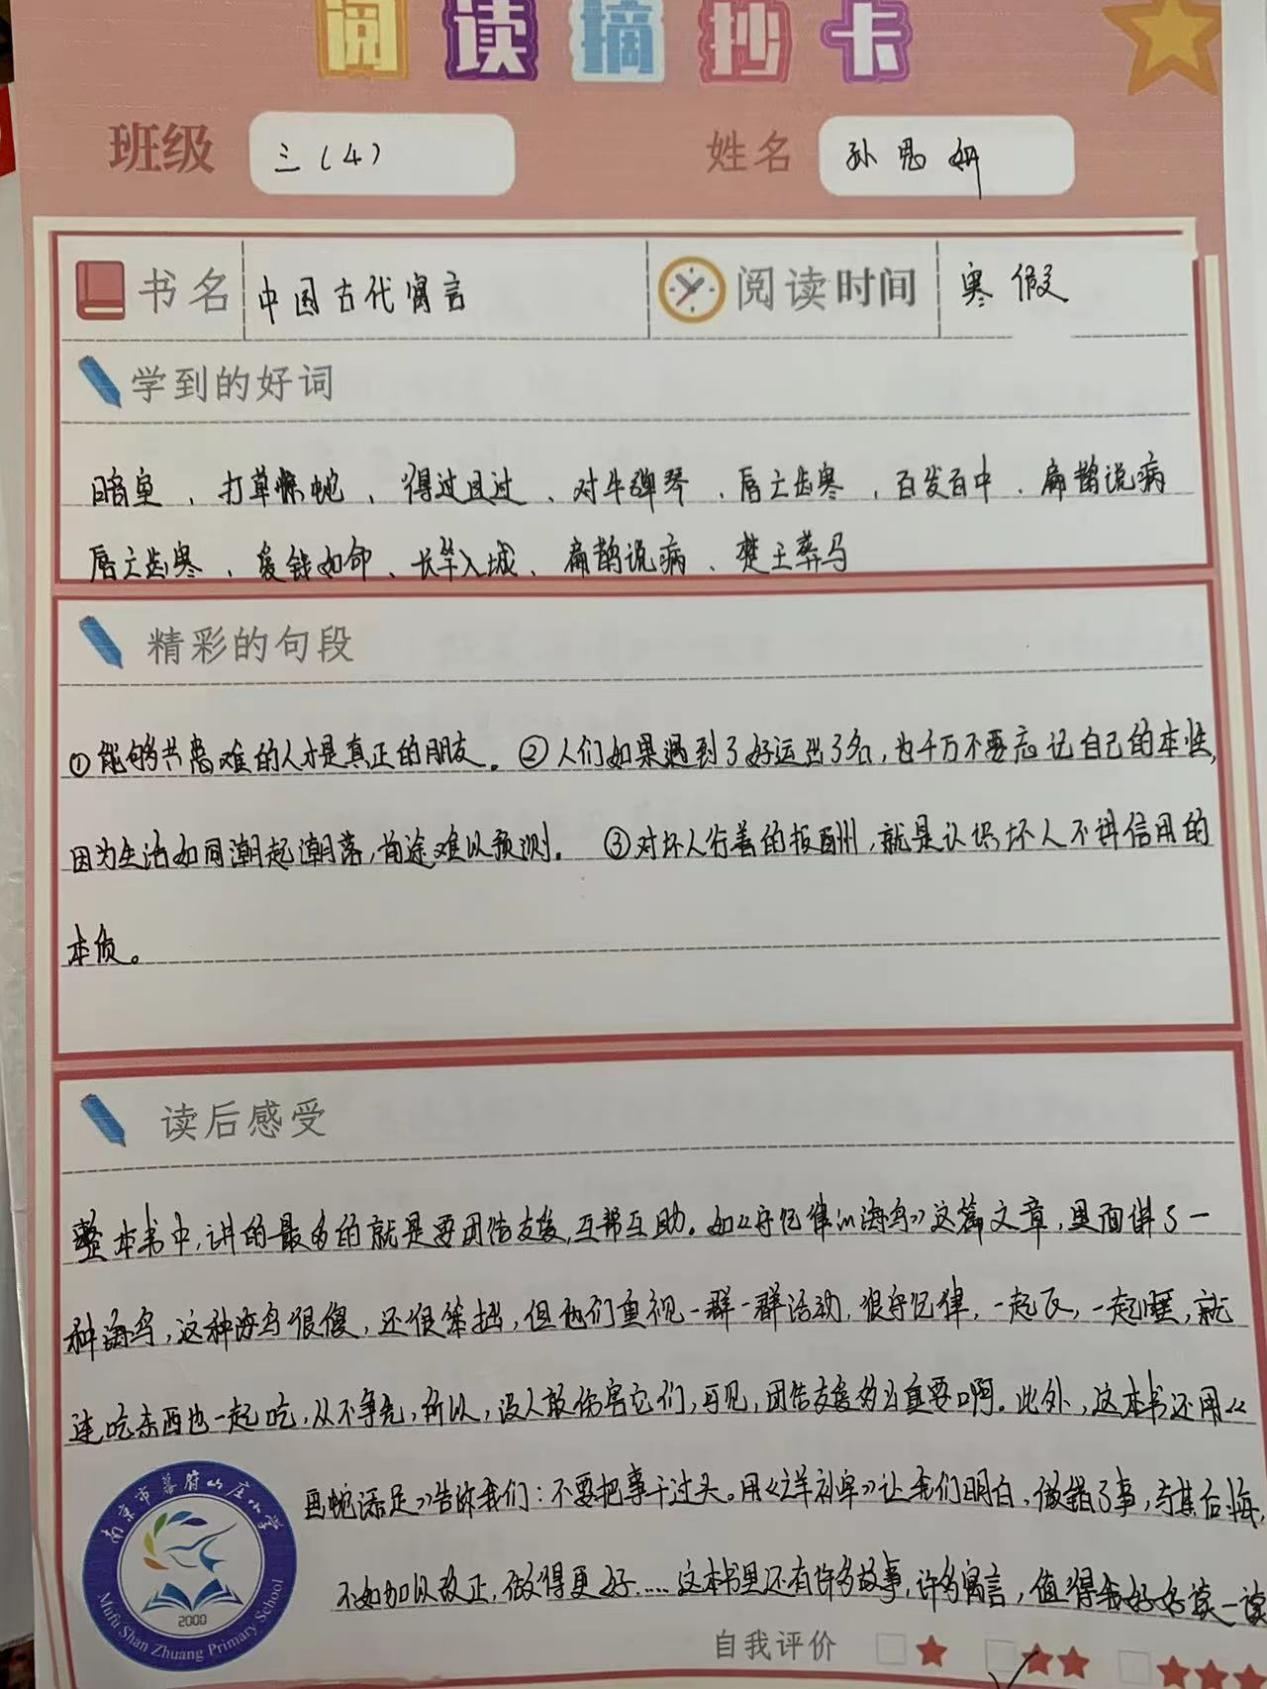 阅读摘抄卡
班级 三（4） 姓名 孙思妍
书名 中国古代寓言 阅读时间 寒假
学到的好词
打草惊蛇、得过且过、对牛弹琴、唇亡齿寒、百发百中、扁鹊说病
唇亡齿寒、爱钱如命、长竿入城、扁鹊说病、楚王葬马
精彩的句段
①能够共患难的人才是真正的朋友。②人们如果遇到了好运出了名,也千万不要忘记自己的本性,
因为生活如同潮起潮落,前途难以预测。 ③对坏人行善的报酬,就是认识坏人不讲信用的
本质。
读后感受
整本书中,讲的最多的就是要团结友爱,互帮互助。如《守纪律的海鸟》这篇文章,里面讲了一
种海鸟,这种海鸟很傻,还很笨拙,但他们重视一群一群活动,很守纪律,一起飞,一起睡,就
连吃东西也一起吃,从不争先,所以,没人敢伤害它们,可见,团结友爱多么重要啊。此外,这本书还用《
画蛇添足》告诉我们:不要把事干过头。用《亡羊补牢》让我们明白,做错了事,与其后悔,
不如加以改正,做得更好……这本书里还有许多故事,许多寓言,值得我好好读一读
南京市幕府山庄小学
2000
Mufu Shan Zhuang Primary School
自我评价